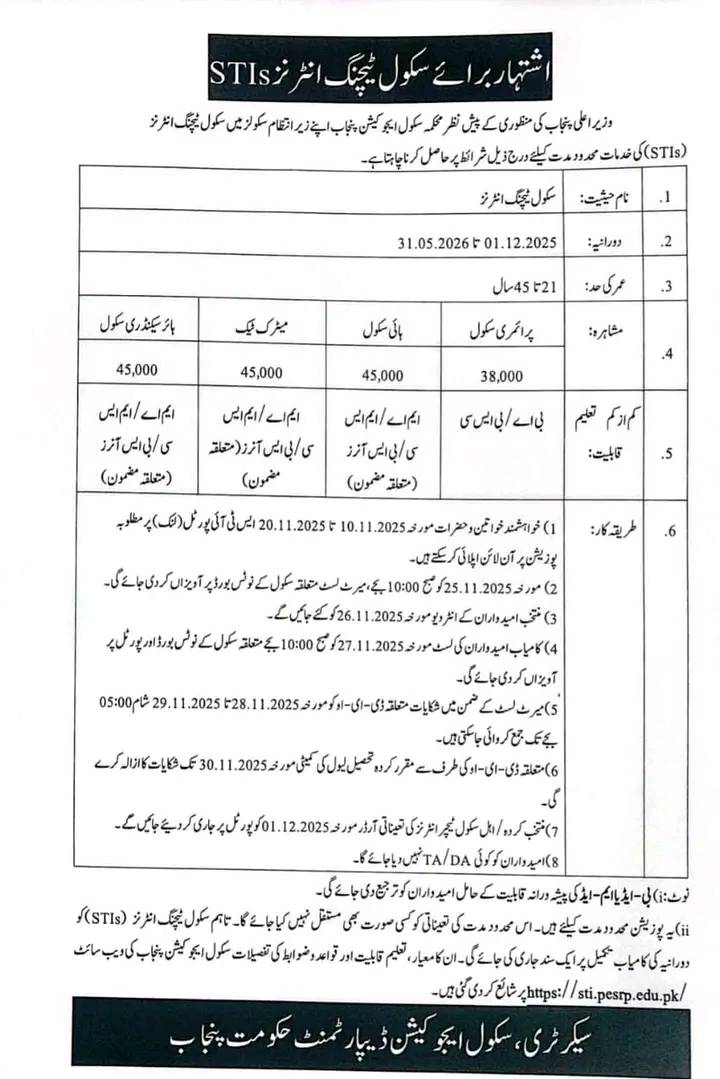 اشتہار برائے سکول ٹیچنگ انٹرنز STIs
وزیر اعلی پنجاب کی منظوری کے پیش نظر محکمہ سکول ایجوکیشن پنجاب اپنے زیر انتظام سکولز میں سکول ٹیچنگ انٹرنز
(STIs) کی خدمات محدود مدت کیلئے درج ذیل شرائط پر حاصل کرنا چاہتا ہے۔
1. نام حیثیت: سکول ٹیچنگ انٹرنز
2. دورانیہ: 01.12.2025 تا 31.05.2026
3. عمر کی حد: 21 تا 45 سال
4. مشاہرہ: پرائمری سکول ہائی سکول میٹرک ٹیک ہائر سیکنڈری سکول
38,000 45,000 45,000 45,000
5. کم از کم تعلیم قابلیت: بی اے/بی ایس سی ایم اے/ایم ایس سی/بی ایس آنرز (متعلقہ مضمون) ایم اے/ایم ایس سی/بی ایس آنرز (متعلقہ مضمون) ایم اے/ایم ایس سی/بی ایس آنرز (متعلقہ مضمون)
6. طریقہ کار: 1) خواہشمند خواتین و حضرات مورخہ 10.11.2025 تا 20.11.2025 ایس ٹی آئی پورٹل (لنک) پر مطلوبہ
پوزیشن پر آن لائن اپلائی کر سکتے ہیں۔
2) مورخہ 25.11.2025 کو صبح 10:00 بجے، میرٹ لسٹ متعلقہ سکول کے نوٹس بورڈ پر آویزاں کر دی جائے گی۔
3) منتخب امیدواران کے انٹرویو مورخہ 26.11.2025 کو کئے جائیں گے۔
4) کامیاب امیدواران کی لسٹ مورخہ 27.11.2025 کو صبح 10:00 بجے متعلقہ سکول کے نوٹس بورڈ اور پورٹل پر
آویزاں کر دی جائے گی۔
5) میرٹ لسٹ کے ضمن میں شکایات متعلقہ ڈی-ای-او کو مورخہ 28.11.2025 تا 29.11.2025 شام 05:00
بجے تک جمع کروائی جا سکتی ہیں۔
6) متعلقہ ڈی-ای-او کی طرف سے مقرر کردہ تحصیل لیول کی کمیٹی مورخہ 30.11.2025 تک شکایات کا ازالہ کرے
گی۔
7) منتخب کردہ/اہل سکول ٹیچر انٹرنز کی تعیناتی آرڈر مورخہ 01.12.2025 کو پورٹل پر جاری کر دیئے جائیں گے۔
8) امیدواران کو کوئی TA/DA نہیں دیا جائے گا۔
نوٹ: i) بی-ایڈ یا ایم-ایڈ کی پیشہ ورانہ قابلیت کے حامل امیدواران کو ترجیح دی جائے گی۔
ii) یہ پوزیشن محدود مدت کیلئے ہیں۔ اس محدود مدت کی تعیناتی کو کسی صورت بھی مستقل نہیں کیا جائے گا۔ تاہم سکول ٹیچنگ انٹرنز (STIs) کو
دورانیہ کی کامیاب تکمیل پر ایک سند جاری کی جائے گی۔ ان کا معیار، تعلیم قابلیت اور قواعد و ضوابط کی تفصیلات سکول ایجوکیشن پنجاب کی ویب سائٹ
https://sti.pesrp.edu.pk/ پر شائع کر دی گئی ہیں۔
سیکرٹری، سکول ایجوکیشن ڈیپارٹمنٹ حکومت پنجاب